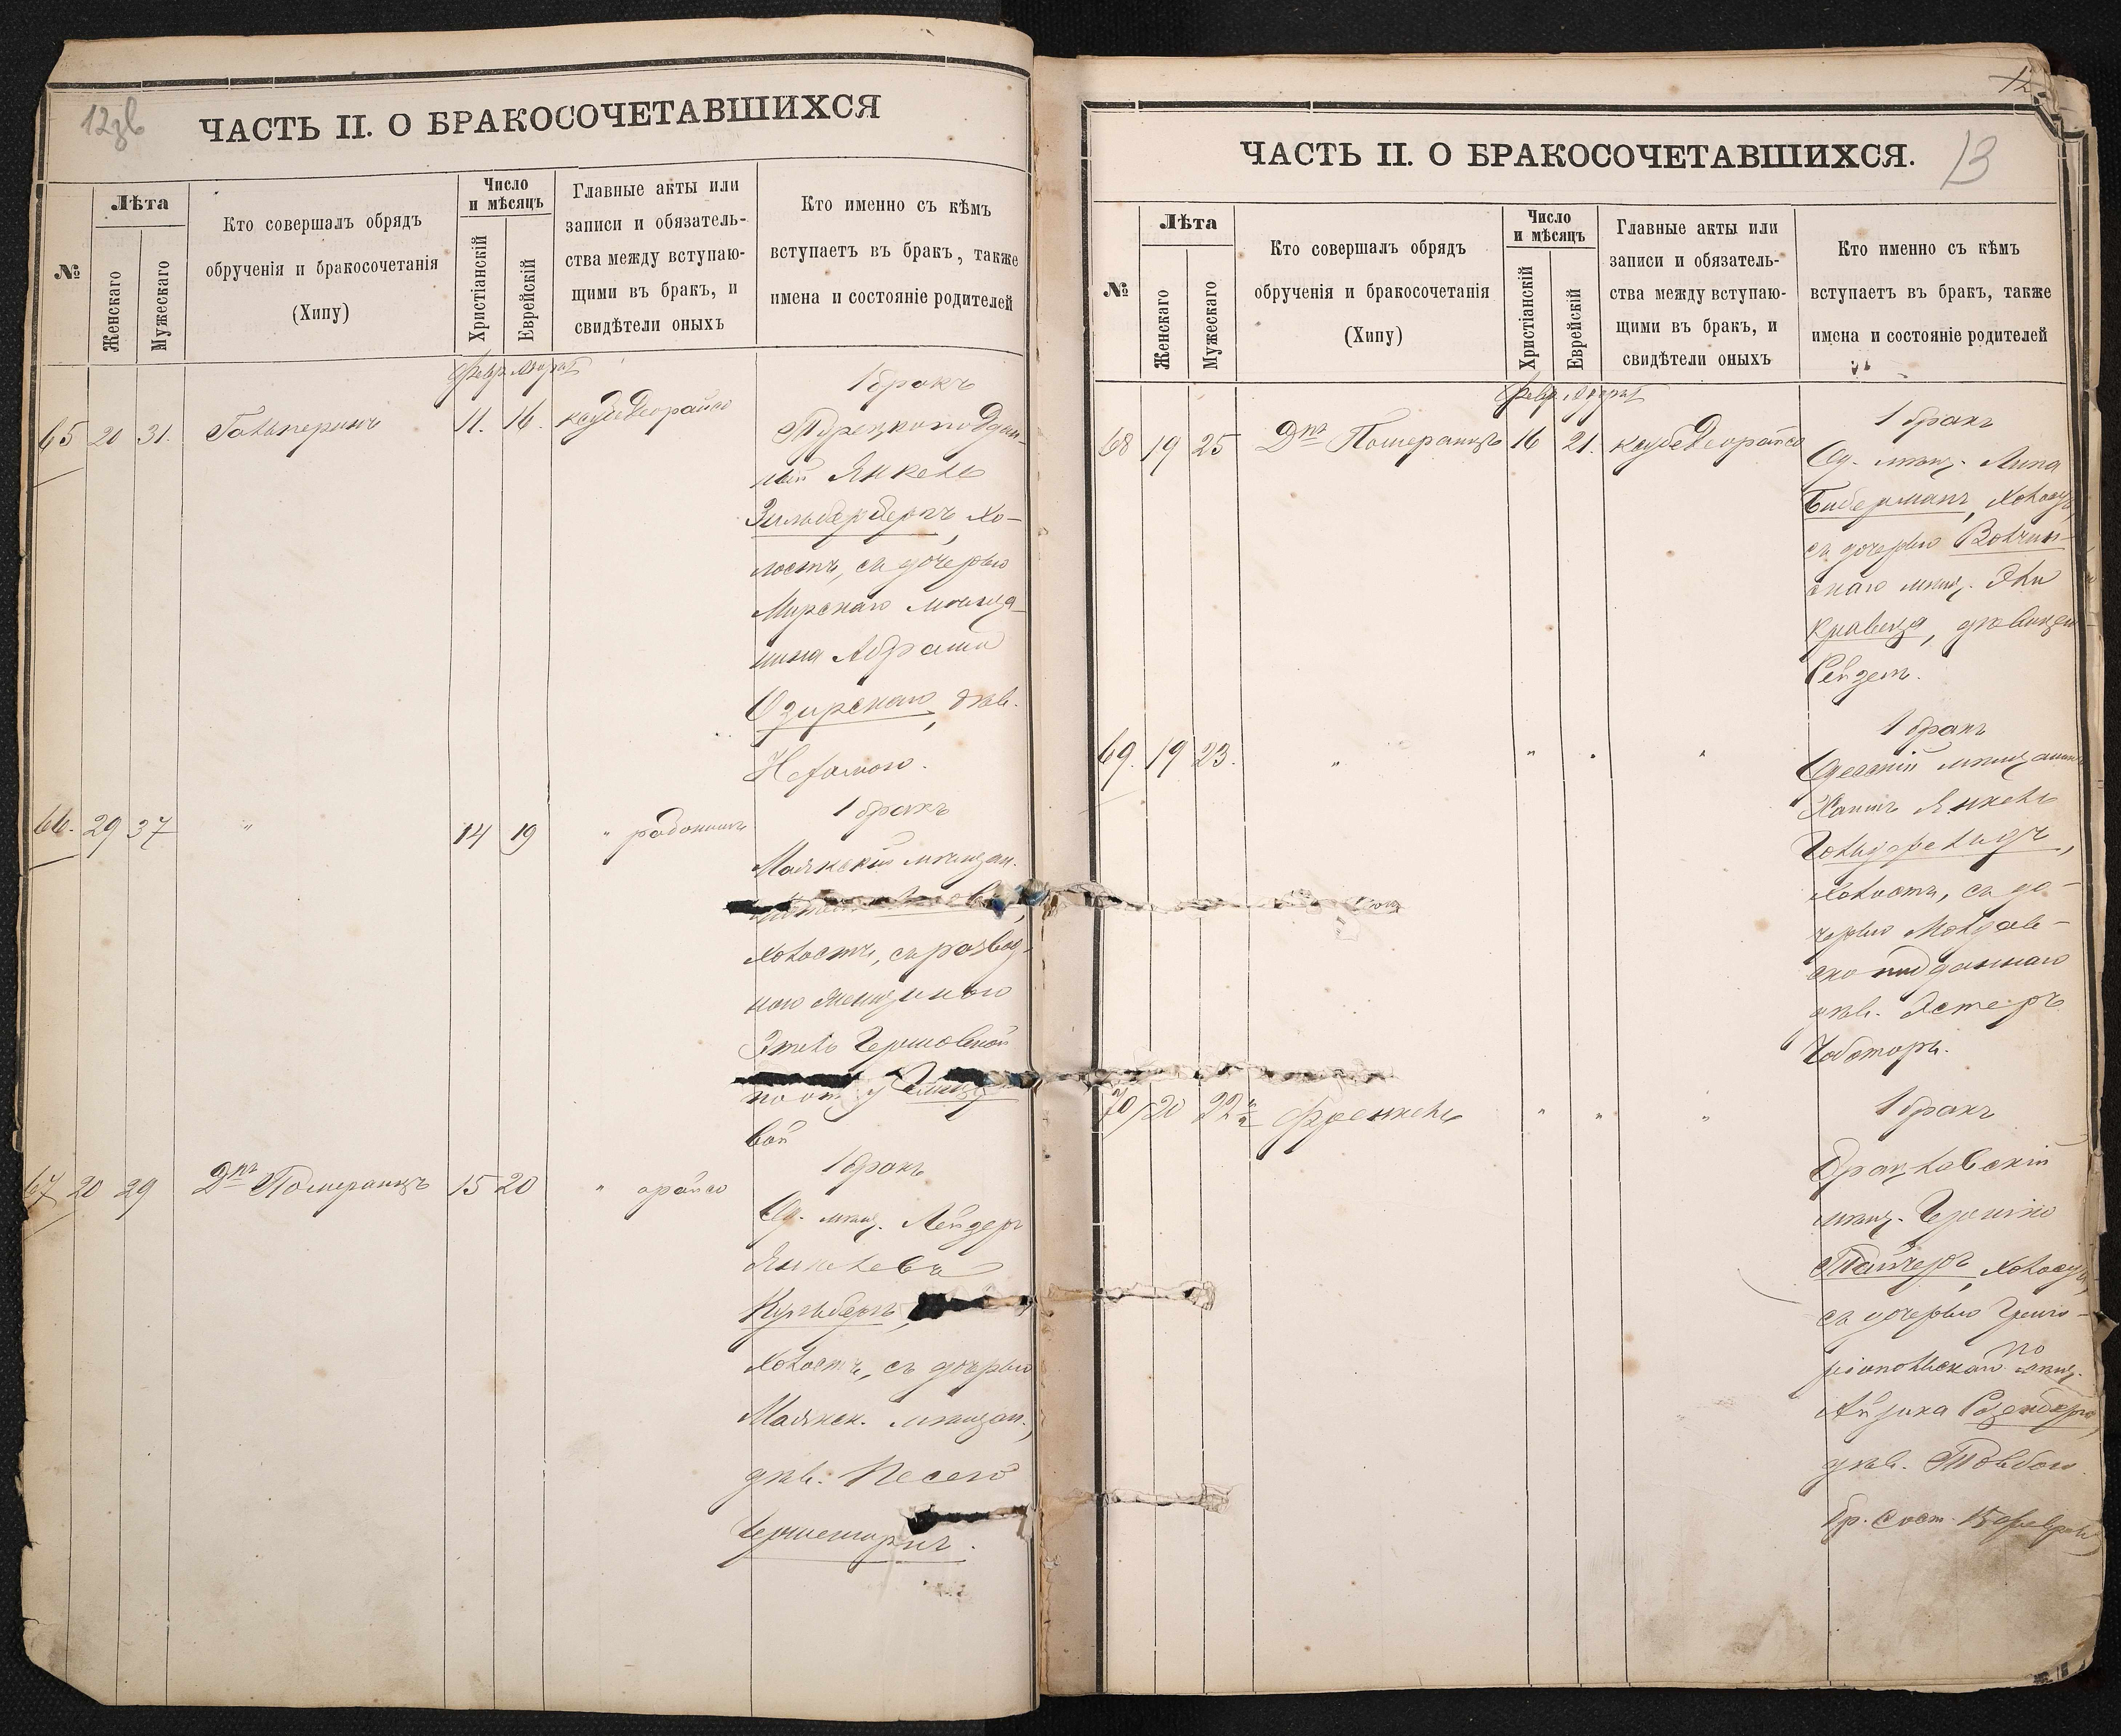 12зв
ЧАСТЬ II. О БРАКОСОЧЕТАВШИХСЯ
№
Лѣта
Женскаго
Мужескаго
Кто совершалъ обрядъ
обрученія и бракосочетанія
(Хипу)
Число
и мѣсяцъ
Христіанскій
Еврейскій
Главные акты или
записи и обязатель-
ства между вступаю-
щими въ бракъ, и
свидѣтели оныхъ
Кто именно съ кѣмъ
вступаетъ въ бракъ, также
имена и состояніе родителей
февр.
65 20 31. Гальперинъ 11. 16.
1 бракъ
Турецкоподдан-
ный Янкель
Зильбербергъ, хо-
лостъ, съ дочерью
Мирскаго мѣща-
нина Абрама
Озирскаго, дѣв.
Нехамою.
66. 29 37 " 14 19 "
1 бракъ
Маякскій мѣщан.
холостъ, съ развод-
ною женщиною
Этель Гершовной
по от.
вой
67 20 29 Дръ Померанцъ 15 20 "
1 бракъ
Од. мѣщ. Лейзеръ
Янкелевъ
холостъ, съ дочерью
Маякск. мѣщан.,
дѣв. Песею
13
ЧАСТЬ II. О БРАКОСОЧЕТАВШИХСЯ.
№
Лѣта
Женскаго
Мужескаго
Кто совершалъ обрядъ
обрученія и бракосочетанія
(Хипу)
Число
и мѣсяцъ
Христіанскій
Еврейскій
Главные акты или
записи и обязатель-
ства между вступаю-
щими въ бракъ, и
свидѣтели оныхъ
Кто именно съ кѣмъ
вступаетъ въ бракъ, также
имена и состояніе родителей
февр.
68 19 25 Дръ Померанцъ 16 21.
1 бракъ
Од. мѣщ. Липа
Биберманъ, холостъ,
съ дочерью Волчин-
скаго мѣщ. Эли
Кравеца, дѣвицею
Рейзею.
69. 19 23. " " " "
1 бракъ
Одесскій мѣщанинъ
Хаимъ Янкель
Гольдфельдъ,
холостъ, съ до-
черью Молдав-
ско подданнаго
дѣв. Эстеръ
Чеботарь.
70 20 22½ Френкель " " "
1 бракъ
Брацлавскій
мѣщ. Гершко
холостъ,
съ дочерью Григо-
ріопольскаго мѣщ.
Айзика Розенберга,
дѣв. Товбою.
бр. сост. 15 февраля